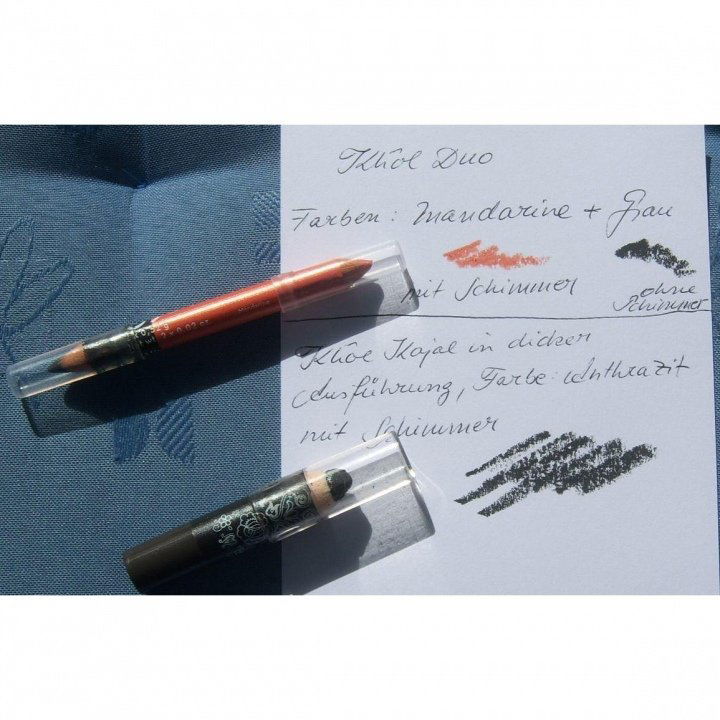 Khôl Duo
Farben: Mandarine + Grau
mit Schimmer
ohne
Schimmer
Khôl Kajal in dicker
Ausführung, Farbe: Anthrazit
mit Schimmer